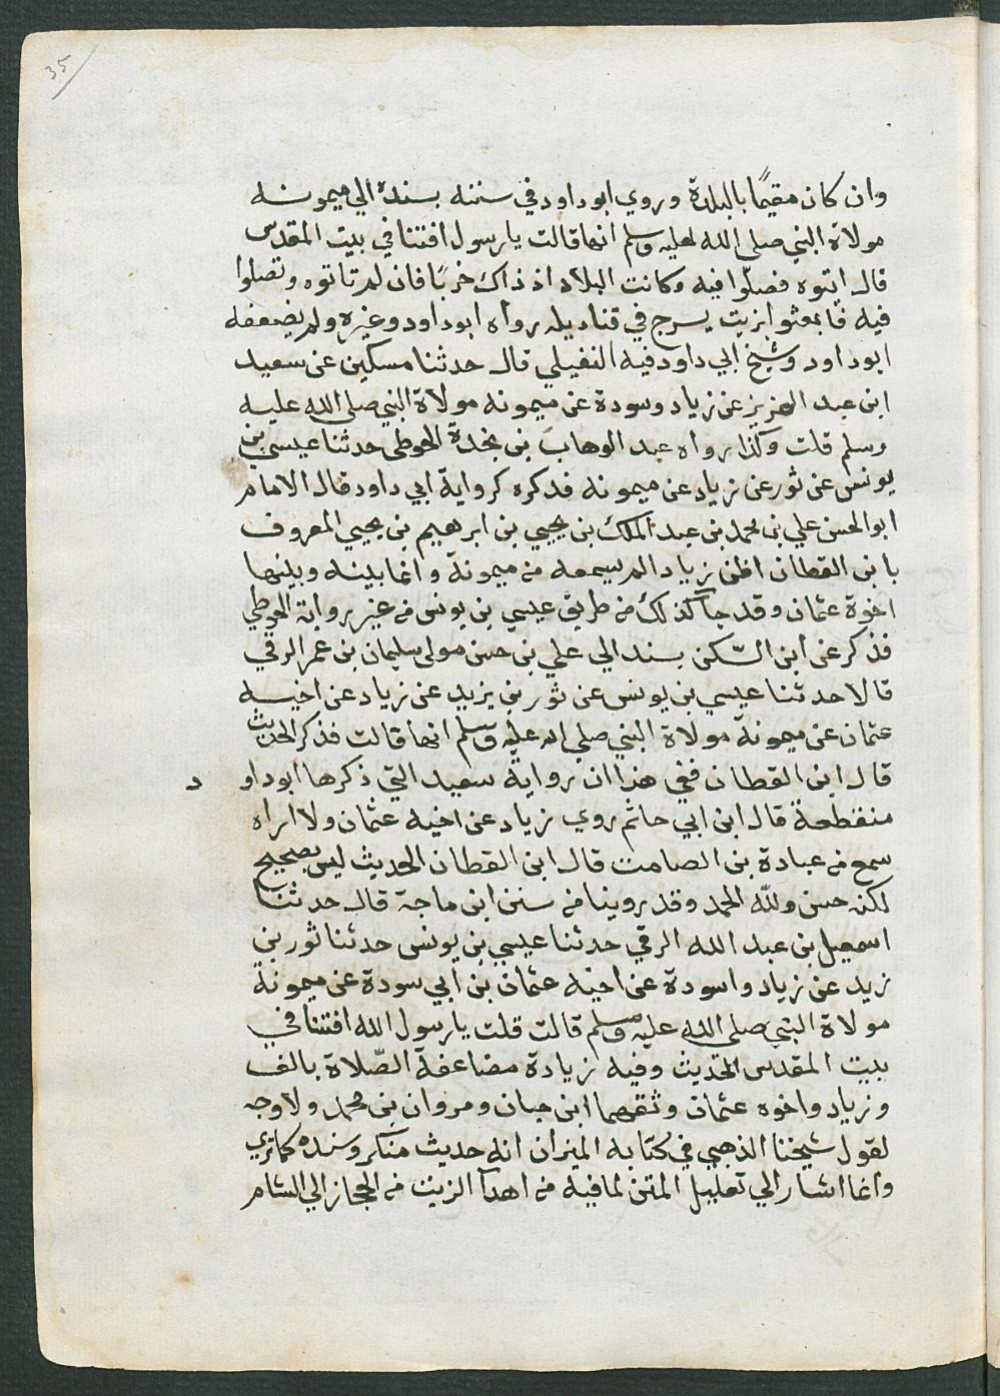 35
وان كان مقيمًا بالبلدة وروي ابو داود في سننه بسنده الي ميمونه
مولاة النبي صلي الله عليه وسلم انها قالت يا رسول افتنا في بيت المقدس
قال ائتوه فصلوا فيه وكانت البلاد اذ ذاك خربًا فان لم تاتوه وتصلوا
فيه فابعثوا بزيت يسرج في قناديله رواه ابو داود وغيره ولم يضعفه
ابو داود وشيخ ابي داود فيه النفيلي قال حدثنا مسكين عن سعيد
ابن عبد العزيز عن زياد وسودة عن ميمونه مولاة النبي صلي الله عليه
وسلم قلت وكذا رواه عبد الوهاب بن نجدة الحوطي حدثنا عيسي بن
يونس عن ثور عن زياد عن ميمونه فذكره كرواية ابي داود قال الامام
ابو الحسن علي بن محمد بن عبد الملك بن يحيي بن ابرهيم بن يحيي المعروف
بابن القطان اظن زياد الم سيمعه من ميمونة وانما بينه وبينها
اخوة عثمان وقد جا كذلك من طريق عيسي بن يونس من غير رواية الحوطي
فذكر عن ابن السّكن بسند الي علي بن حسن مولي سليمان بن عمر الرقي
قالا حدثنا عيسي بن يونس عن ثور بن يزيد عن زياد عن اخيه
عثمان عن ميمونة مولاة النبي صلي الله عليه وسلم انها قالت فذكر الحديث
قال ابن القطان ففي هذا ان رواية سعيد التي ذكرها ابو داو د
منقطعة قال ابن ابي حاتم روي زياد عن اخيه عثمان ولا اراه
سمع من عبادة بن الصامت قال ابن القطان الحديث ليس بصحيح
لكنه حسن ولله الحمد وقد روينا من سنن ابن ماجة قال حدثنا
اسمعيل بن عبد الله الرقي حدثنا عيسي بن يونس حدثنا ثور بن
زيد عن زياد واسودة عن اخيه عثمان بن ابي سودة عن ميمونة
مولاة النبي صلي الله عليه وسلم قالت قلت يا رسول الله افتنا في
بيت المقدس الحديث وفيه زيادة مضاعفة الصّلاة بالف
وزياد واخوه عثمان وثقهما ابن حبان ومروان بن محمد ولا وجه
لقول شيخنا الذهبي في كتابه الميزان انه حديث منكر وسنده كما تري
وانما اشار الي تعليل المتن لما فيه من اهدآ الزيت من الحجاز الي الشام